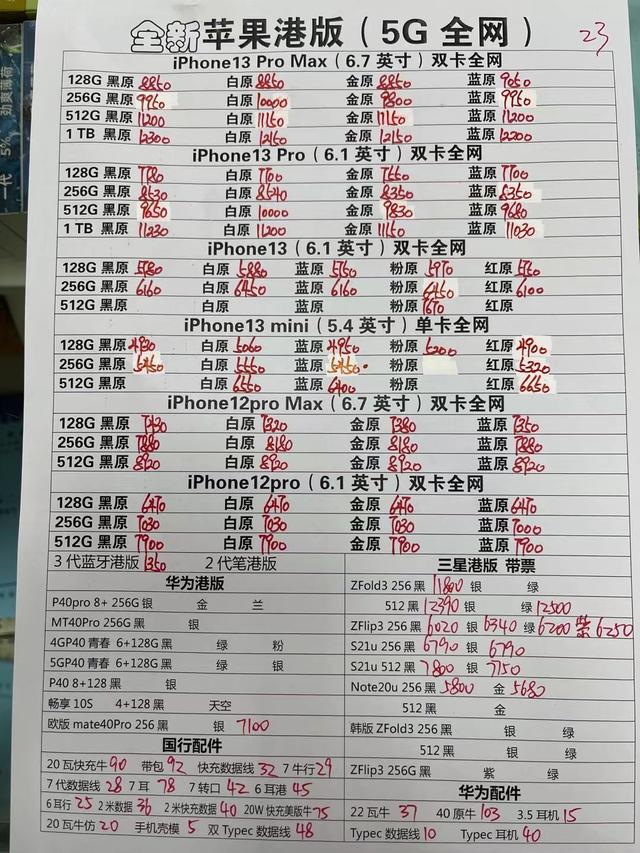 全新苹果港版（5G 全网） 23
iPhone13 Pro Max（6.7 英寸）双卡全网
128G 黑原 8850 白原 8850 金原 8850 蓝原 9050
256G 黑原 9950 白原 10000 金原 9800 蓝原 9950
512G 黑原 11200 白原 11150 金原 11150 蓝原 11200
1 TB 黑原 12300 白原 12150 金原 12150 蓝原 12200
iPhone13 Pro（6.1 英寸）双卡全网
128G 黑原 7780 白原 7700 金原 7550 蓝原 7700
256G 黑原 8530 白原 8540 金原 8350 蓝原 8350
512G 黑原 9650 白原 10000 金原 9830 蓝原 9680
1 TB 黑原 11230 白原 11200 金原 11150 蓝原 11030
iPhone13（6.1 英寸）双卡全网
128G 黑原 5780 白原 5880 蓝原 5760 粉原 5970 红原
256G 黑原 6160 白原 6450 蓝原 6160 粉原 6450 红原 6100
512G 黑原 白原 蓝原 粉原 7670 红原
iPhone13 mini（5.4 英寸）单卡全网
128G 黑原 4930 白原 5060 蓝原 4950 粉原 5200 红原 4900
256G 黑原 5450 白原 5550 蓝原 5450 粉原 红原 5320
512G 黑原 白原 6550 蓝原 6400 粉原 红原 6650
iPhone12pro Max（6.7 英寸）双卡全网
128G 黑原 7430 白原 7320 金原 7380 蓝原 7350
256G 黑原 7880 白原 8180 金原 8180 蓝原 7880
512G 黑原 8920 白原 8920 金原 8920 蓝原 8920
iPhone12pro（6.1 英寸）双卡全网
128G 黑原 6470 白原 6470 金原 6470 蓝原 6470
256G 黑原 7030 白原 7030 金原 7030 蓝原 7000
512G 黑原 7900 白原 7900 金原 7900 蓝原 7900
3 代蓝牙港版 1350 2 代笔港版
华为港版
P40pro 8+ 256G 银 金 兰
MT40Pro 256G 黑 银
4GP40 青春 6+128G 黑 绿 粉
5GP40 青春 6+128G 黑 绿 银
P40 8+128 黑 银
畅享 10S 4+128 黑 天空
欧版 mate40Pro 256 黑 银 7100
国行配件
20 瓦快充牛 90 带包 92 快充数据线 32 7 牛行 29
7 代数据线 28 7 耳 78 7 转口 42 6 耳港 45
6 耳行 25 2 米数据 36 2 米快充数据 40 20W 快充美版牛 75
20 瓦牛仿 20 手机壳模 5 双 Typec 数据线 48
三星港版 带票
ZFold3 256 黑 11800 银 绿
512 黑 12390 银 绿 12500
ZFlip3 256 黑 6020 银 6340 绿 6200 紫 6250
S21u 256 黑 6790 银 6790
S21u 512 黑 7800 银 7150
Note20u 256 黑 5800 金 5680
512 黑 金
韩版 ZFold3 256 黑 银 绿
512 黑 银 绿
ZFlip3 256G 黑 紫 绿
华为配件
22 瓦牛 37 40 原牛 103 3.5 耳机 15
Typec 数据线 10 Typec 耳机 40
5%